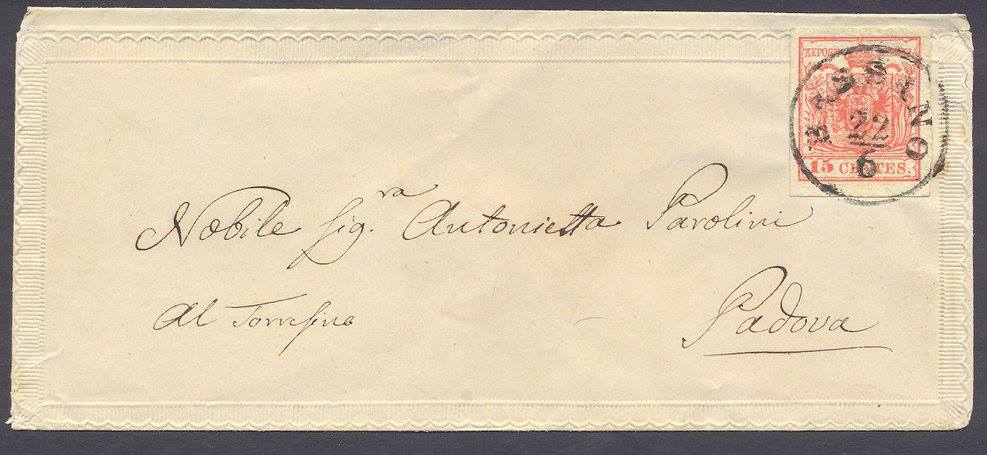 KKPOST
BISSINO
22
6
15 CENTES.
Nobile Sig.ra Antonietta Parolini
Al Torresino
Padova